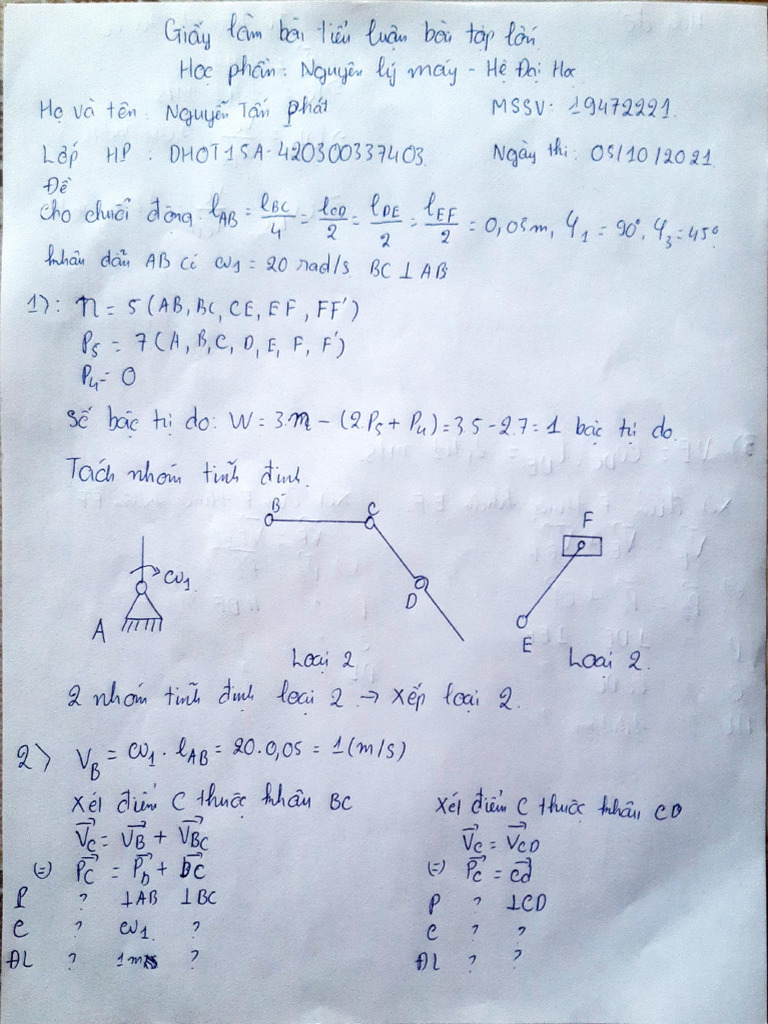 Giấy làm bài tiểu luận bài tập lớn
Học phần: Nguyên lý máy - Hệ Đại Học
Họ và tên: Nguyễn Tấn phát MSSV: 19472221.
Lớp HP : DHOT15A-420300337403. Ngày thi: 05/10/2021
Đề
cho chuỗi động: l_AB = l_BC/4 = l_CD/2 = l_DE/2 = l_EF/2 = 0,05m, φ1 = 90°, φ3 = 45°
khâu dẫn AB có ω1 = 20 rad/s. BC ⊥ AB
1): n = 5 (AB, BC, CE, EF, FF')
P5 = 7 (A, B, C, D, E, F, F')
P4 = 0
Số bậc tự do: W = 3.n - (2.P5 + P4) = 3.5 - 2.7 = 1 bậc tự do.
Tách nhóm tĩnh định.
B C F
ω1
A D E
Loại 2 Loại 2.
2 nhóm tĩnh định loại 2 → xếp loại 2.
2) V_B = ω1 . l_AB = 20.0,05 = 1 (m/s)
Xét điểm C thuộc khâu BC
V⃗_C = V⃗_B + V⃗_BC
(=) P⃗c = P⃗b + b⃗c
P ? ⊥AB ⊥BC
C ? ω1 ?
ĐL ? 1m/s ?
Xét điểm C thuộc khâu CD
V⃗_C = V⃗_CD
(=) P⃗c = c⃗d
P ? ⊥CD
C ? ?
ĐL ? ?